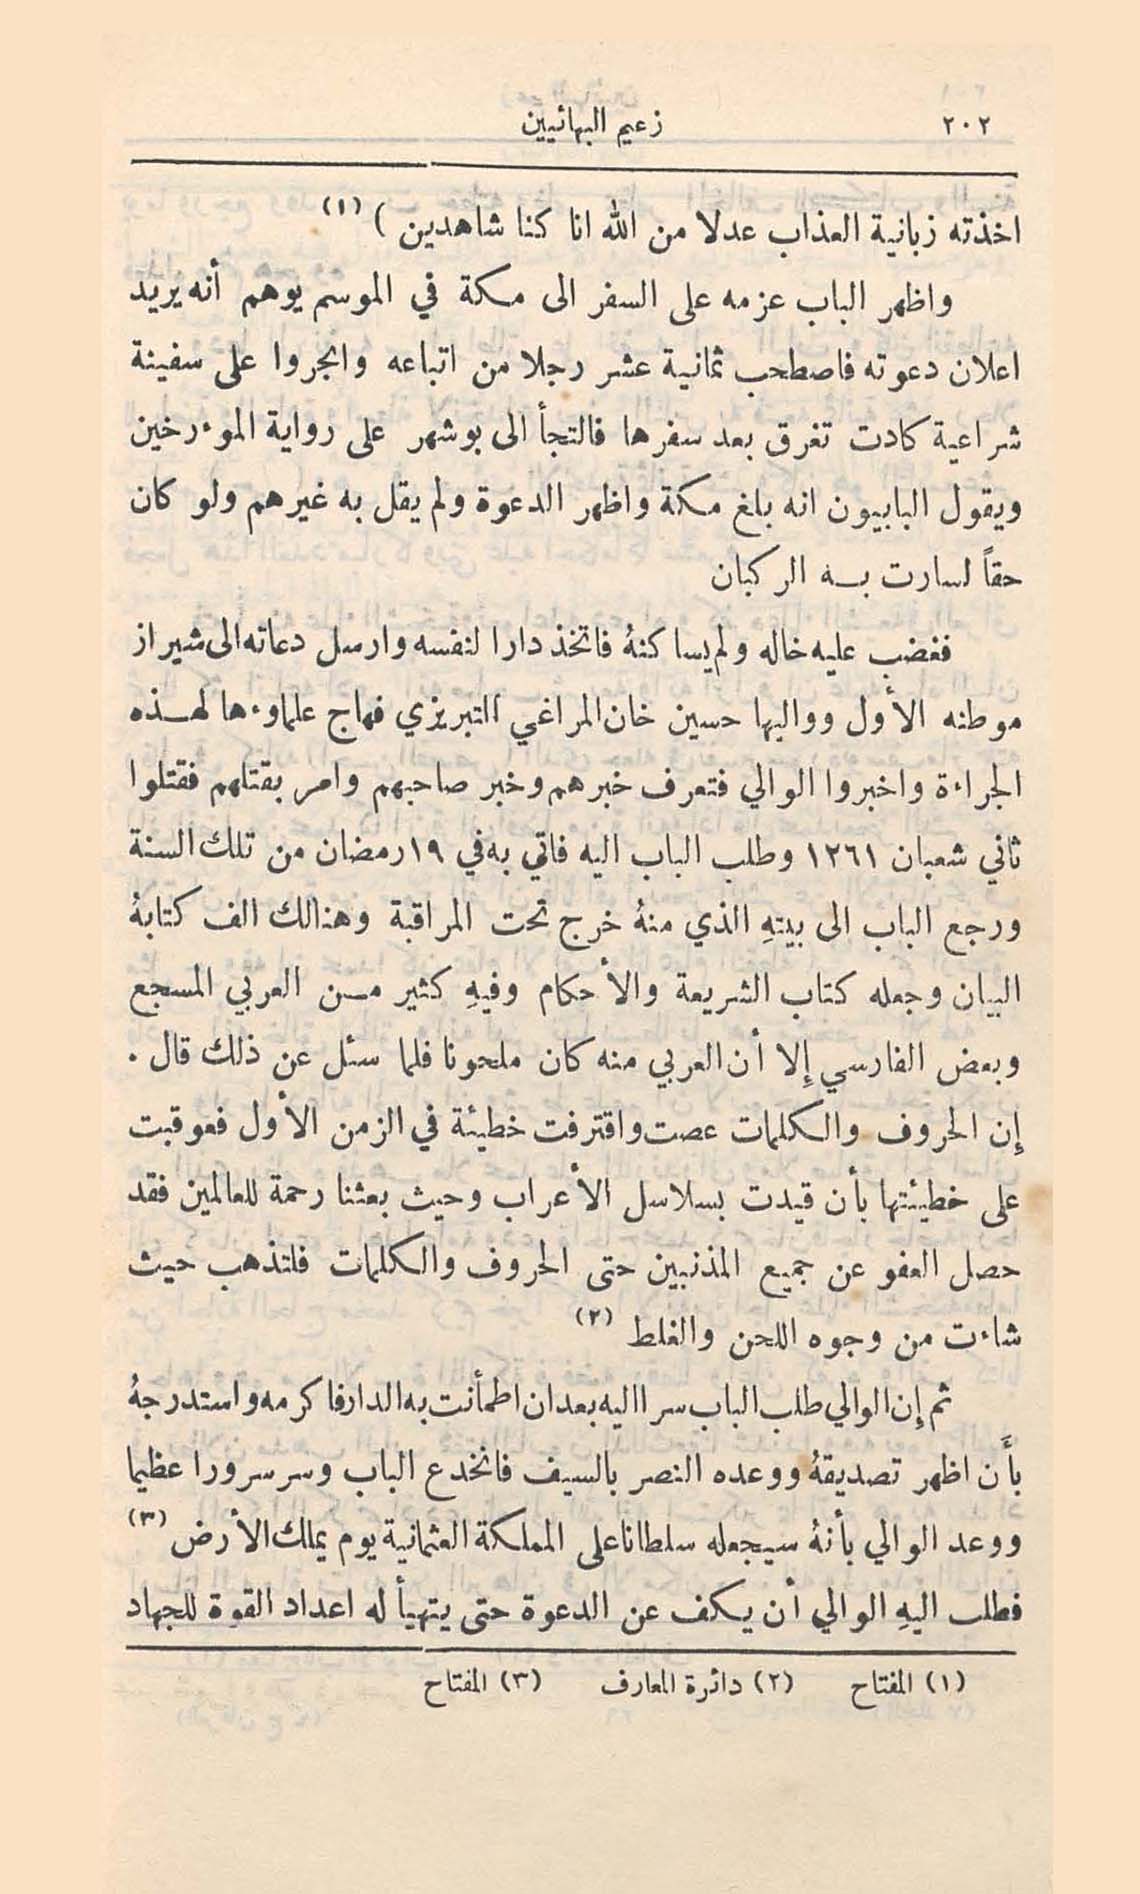 ٢٠٢ زعيم البهائيين
اخذته زبانية العذاب عدلا من الله انا كنا شاهدين ) (١)
واظهر الباب عزمه على السفر الى مكة في الموسم يوهم أنه يريد
اعلان دعوته فاصطحب ثمانية عشر رجلا من اتباعه وابجروا على سفينة
شراعية كادت تغرق بعد سفرها فالتجأ الى بوشهر على رواية الموءرخين
ويقول البابيون انه بلغ مكة واظهر الدعوة ولم يقل به غيرهم ولو كان
حقاً لسارت به الركبان
فغضب عليه خاله ولم يساكنهُ فاتخذ دارا لنفسه وارسل دعاته الى شيراز
موطنه الأول وواليها حسين خان المراغي التبريزي فهاج علماوءها لهذه
الجراءة واخبروا الوالي فتعرف خبرهم وخبر صاحبهم وامر بقتلهم فقتلوا
ثاني شعبان ١٢٦١ وطلب الباب اليه فاتي به في ١٩ رمضان من تلك السنة
ورجع الباب الى بيتهِ الذي منهُ خرج تحت المراقبة وهنالك الف كتابهُ
البيان وجعله كتاب الشريعة والأحكام وفيهِ كثير من العربي المسجع
وبعض الفارسي إلا أن العربي منه كان ملحونا فلما سئل عن ذلك قال .
إن الحروف والكلمات عصت واقترفت خطيئة في الزمن الأول فعوقبت
على خطيئتها بأن قيدت بسلاسل الأعراب وحيث بعثنا رحمة للعالمين فقد
حصل العفو عن جميع المذنبين حتى الحروف والكلمات فلتذهب حيث
شاءت من وجوه اللحن والغلط (٢)
ثم إن الوالي طلب الباب سرا اليه بعد ان اطمأنت به الدار فاكرمه واستدرجهُ
بأَن اظهر تصديقهُ ووعده النصر بالسيف فانخدع الباب وسر سرورا عظيما
ووعد الوالي بأنهُ سيجعله سلطانا على المملكة العثمانية يوم يملك الأرض (٣)
فطلب اليهِ الوالي أن يكف عن الدعوة حتى يتهيأ له اعداد القوة للجهاد
(١) المفتاح (٢) دائرة المعارف (٣) المفتاح